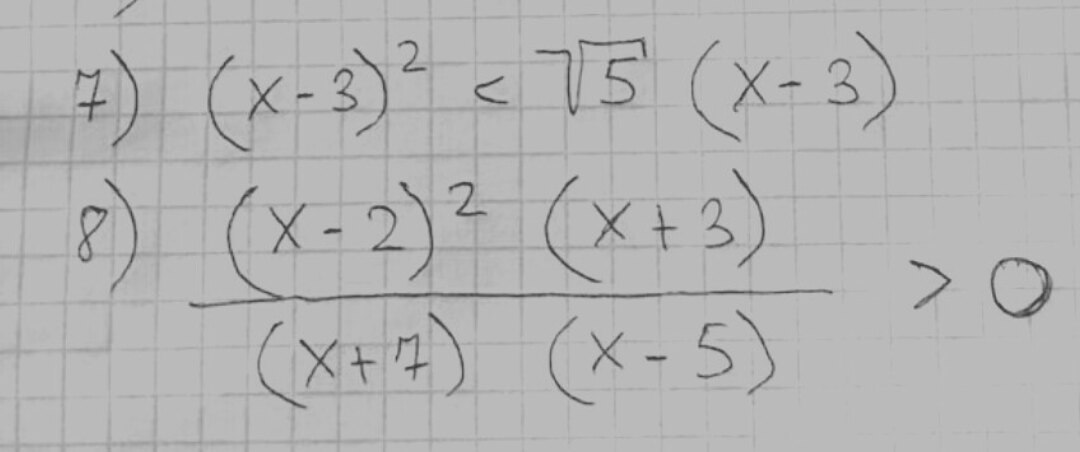 7) (x-3)² < √5 (x-3)
8) (x-2)² (x+3)
(x+7) (x-5) > 0